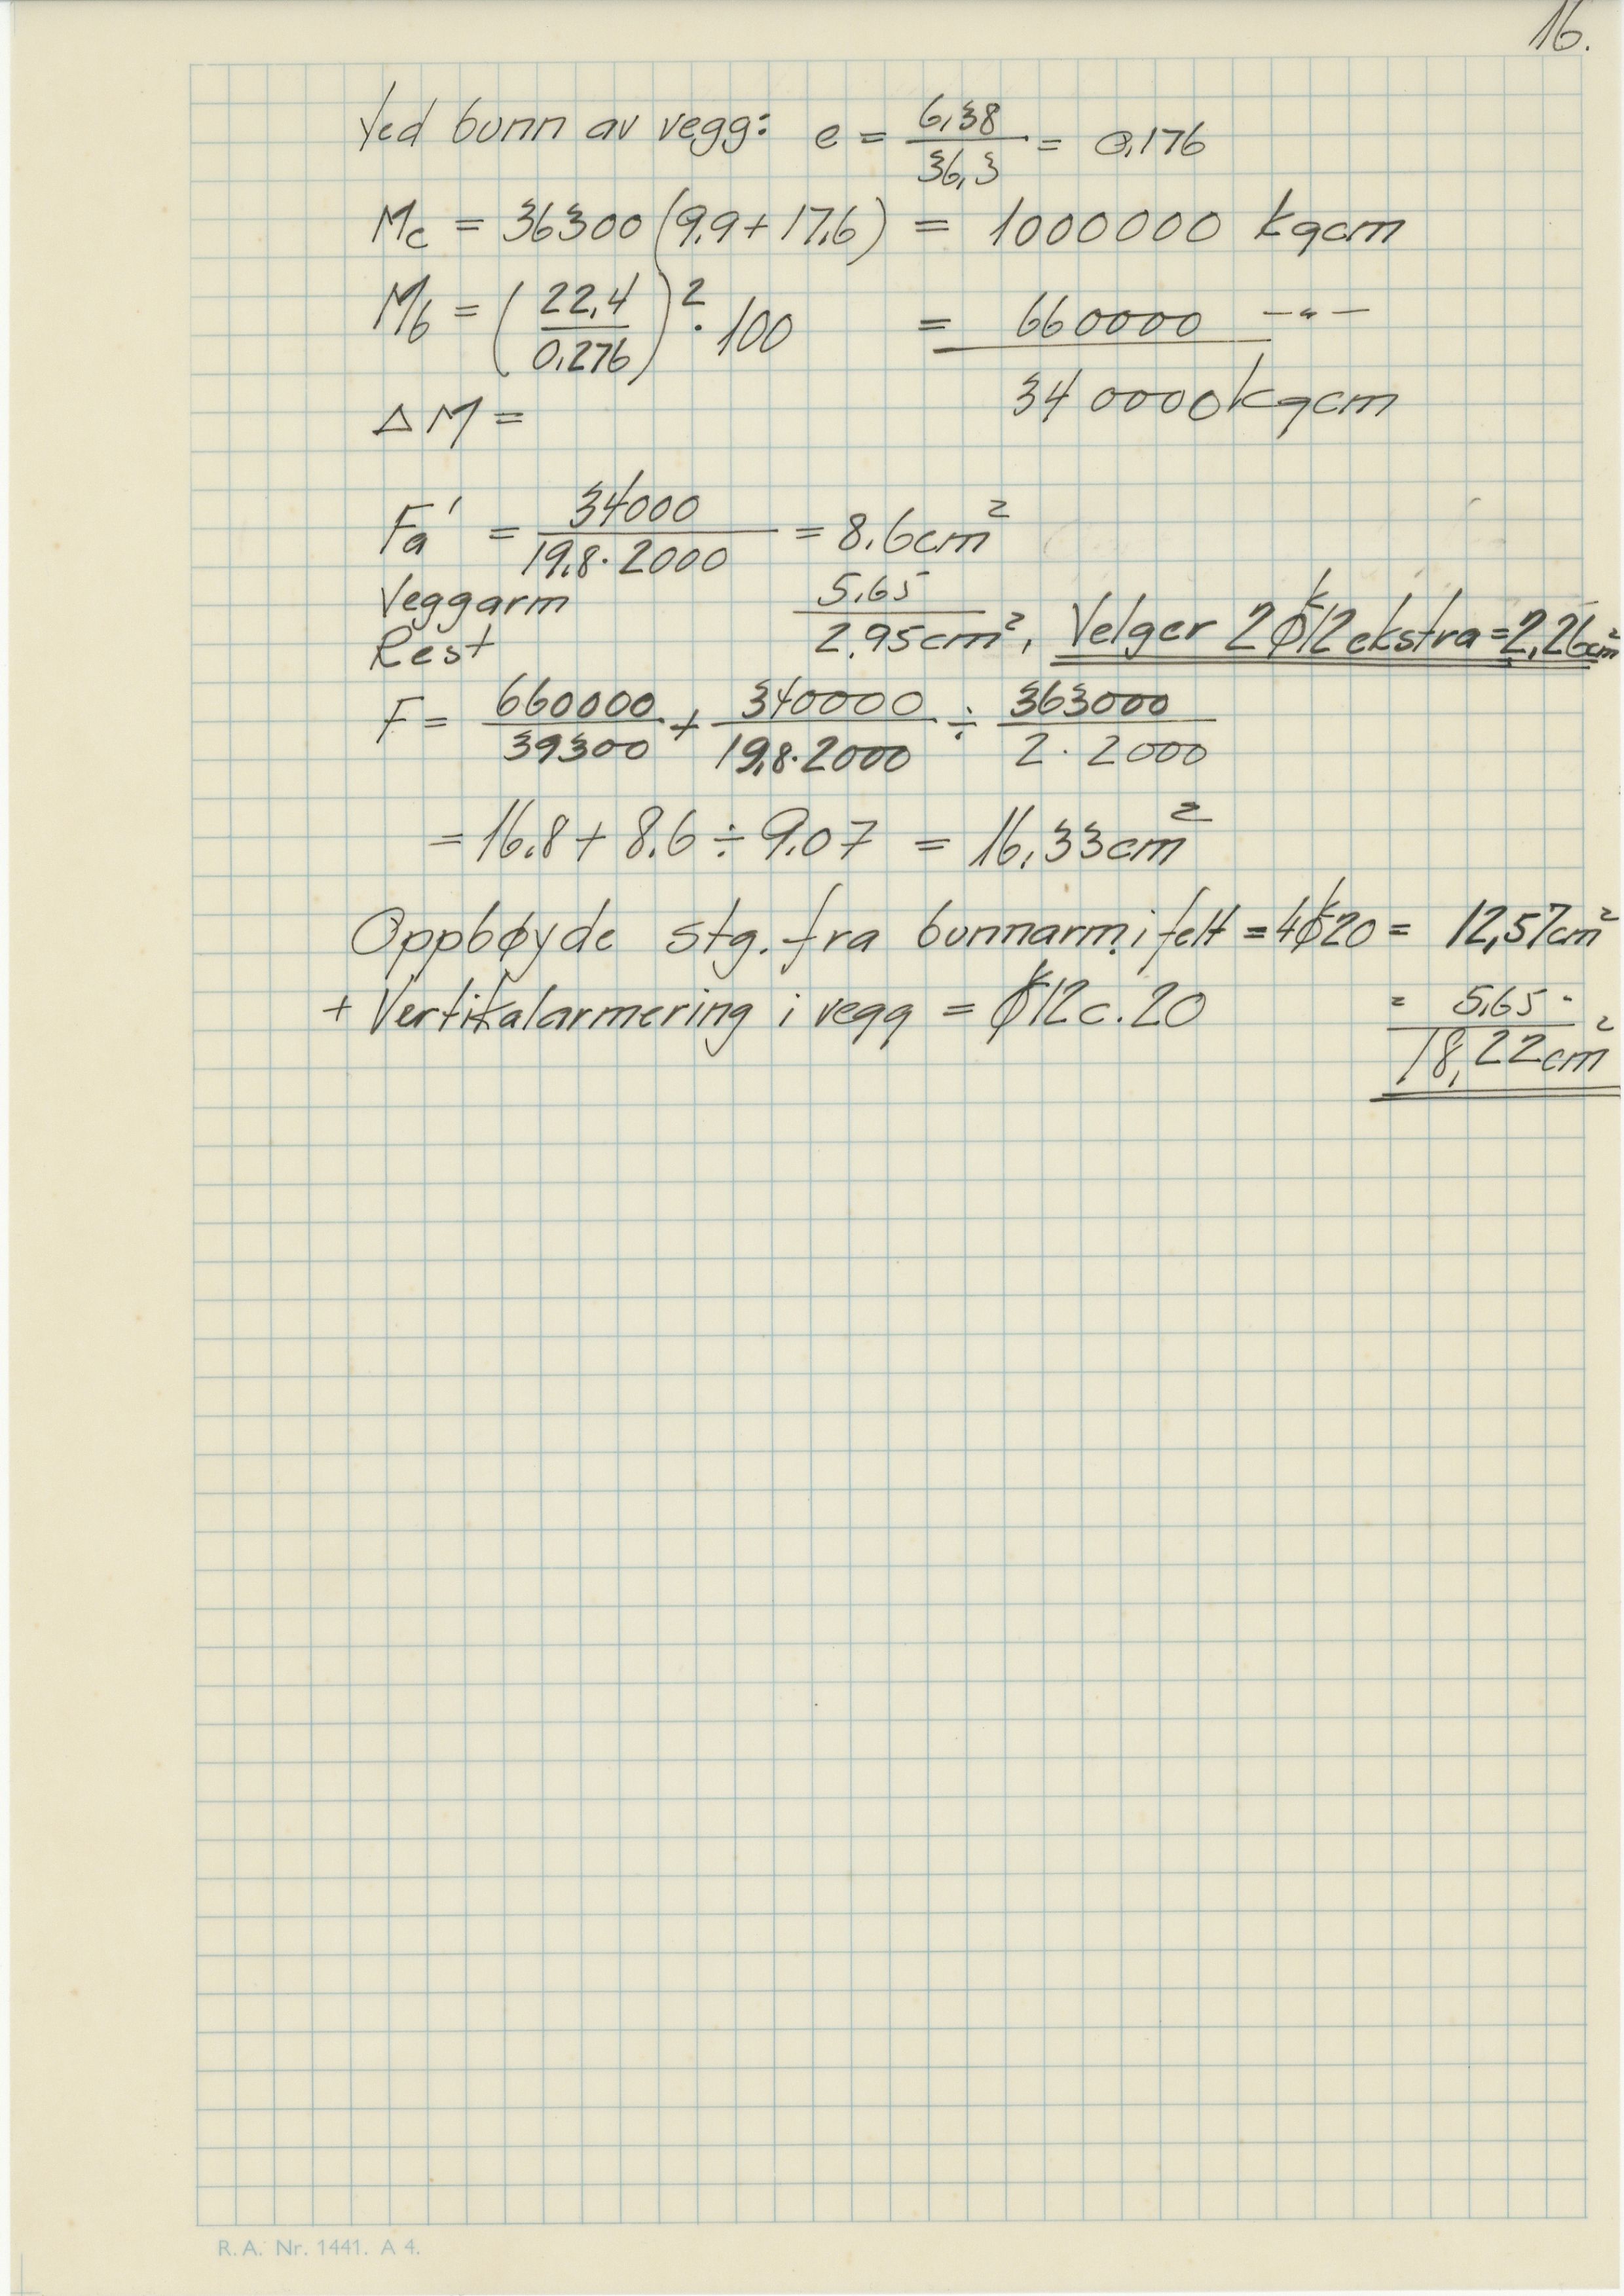 16.
Ved bunn av vegg: e = 6,38 / 36,3 = 0,176
Mc = 36300 (9,9 + 17,6) = 1000000 kgcm
Mb = (22,4 / 0,276)² · 100 = 660000 —"—
ΔM = 340000 kgcm
Fa' = 34000 / 19,8 · 2000 = 8,6 cm²
Veggarm 5,65
Rest 2,95 cm², Velger 2 ø12 ekstra = 2,26 cm²
F = 660000 / 39300 + 340000 / 19,8 · 2000 ÷ 363000 / 2 · 2000
= 16,8 + 8,6 ÷ 9,07 = 16,33 cm²
Oppbøyde stg. fra bunnarm. i felt = 4 ø20 = 12,57 cm²
+ Vertikalarmering i vegg = ø12 c. 20 = 5,65 -
18,22 cm²
R.A. Nr. 1441. A 4.